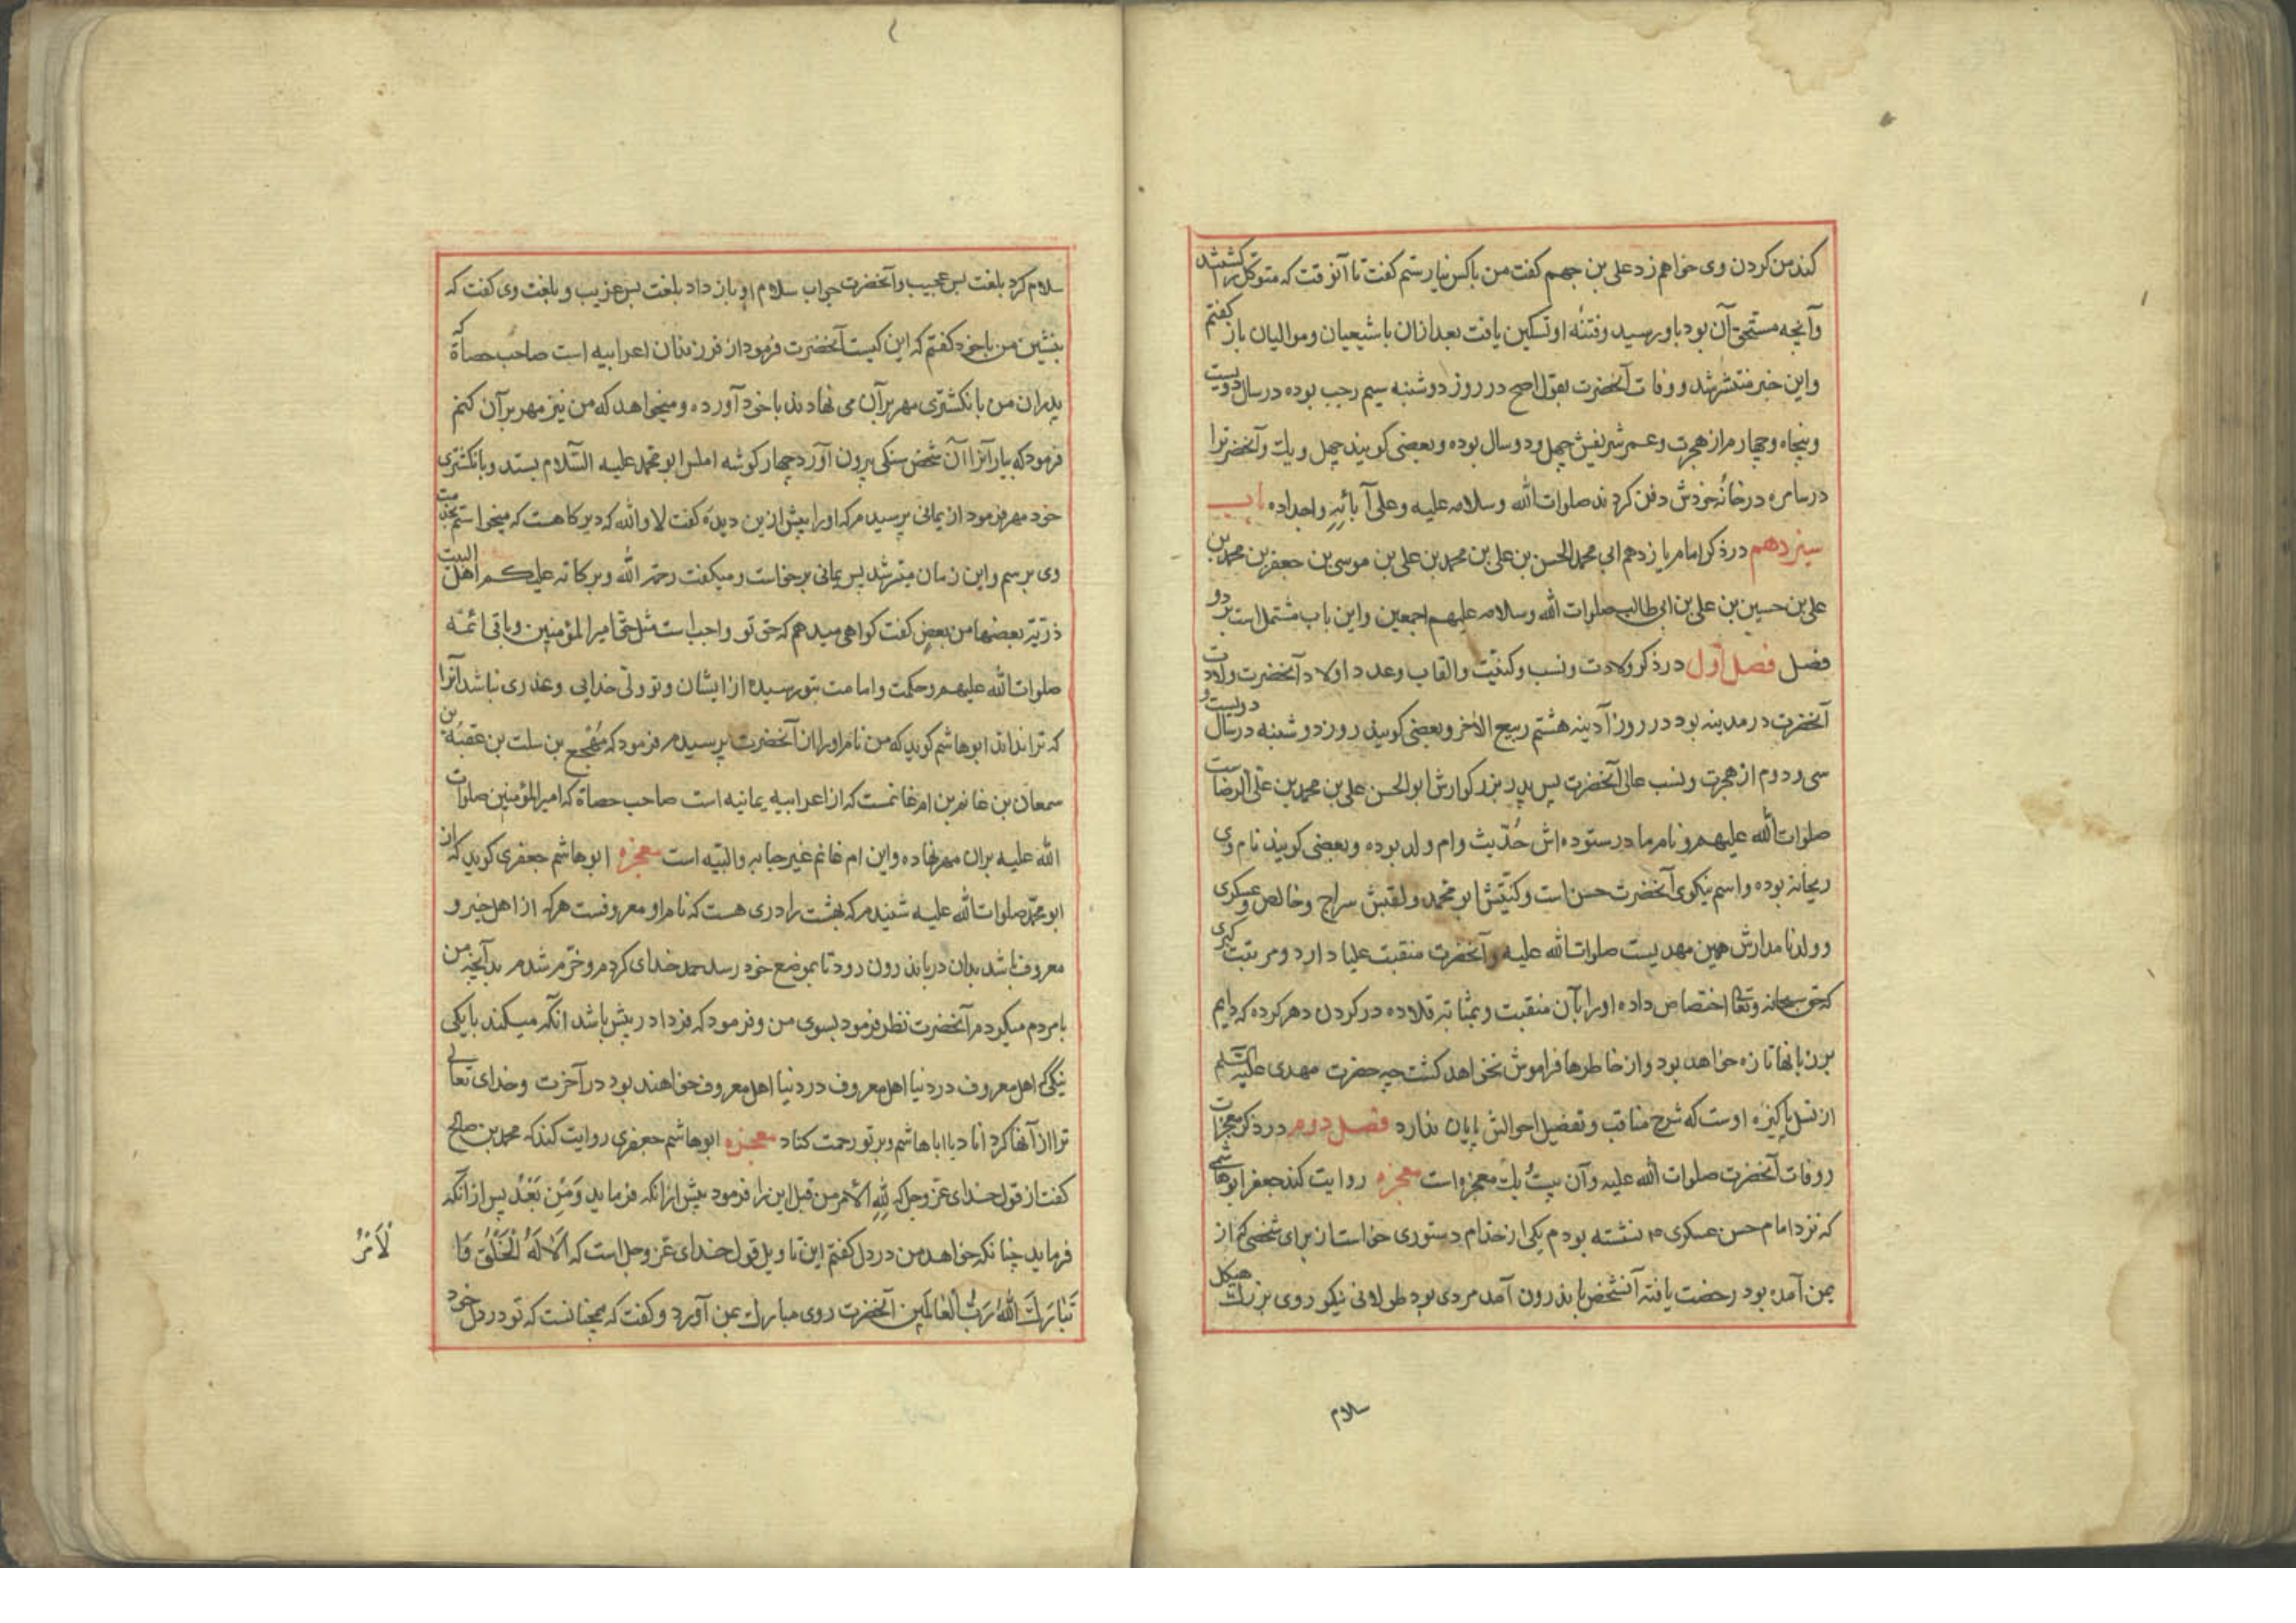 کند من کردن وی خواهم زد علی بن جهم کفت من باکس نیارستم کفت تا آنوقت که متوکل را کشتند
وآنچه مستحق آن بود باو رسید وفتنهٔ او تسکین یافت بعد ازان با شیعیان وموالیان باز کفتم
واین خبر منتشر شد ووفات آنحضرت بقول اصح در روز دوشنبه سیم رجب بوده در سال دویست
وپنجاه وچهارم از هجرت وعمر شریفش چهل ودو سال بوده وبعضی کویند چهل ویک وآنحضرترا
در سامره در خانهٔ خودش دفن کردند صلوات الله وسلامه علیه وعلی آبائه واجداده باب
سیزدهم در ذکر امام یازدهم ابی محمد الحسن بن علی بن محمد بن علی بن موسی بن جعفر بن محمد بن
علی بن حسین بن علی بن ابی طالب صلوات الله وسلامه علیهم اجمعین واین باب مشتمل است بر دو
فصل فصل اول در ذکر ولادت ونسب وکنیت والقاب وعدد اولاد آنحضرت ولادت
آنحضرت در مدینه بود در روز آدینه هشتم ربیع الاخر وبعضی کویند روز دوشنبه در سال دویست و
سی ودوم از هجرت ونسب عالی آنحضرت پس پدر بزرکوارش ابو الحسن علی بن محمد بن علی الرضاست
صلوات الله علیهم ونام مادر ستوده اش حُدَیث وام ولد بوده وبعضی کویند نام وی
ریحانه بوده واسم نیکوی آنحضرت حسن است وکنیتش ابو محمد ولقبش سراج وخالص وعسکری
وولد نامدارش همین مهدیست صلوات الله علیه وآنحضرت منقبت علیا دارد ومرتبت کبری
که حق سبحانه وتعالی اختصاص داده اورا بآن منقبت وبمثابه قلاده در کردن دهر کرده که دایم
بر زبانها تازه خواهد بود واز خاطرها فراموش نخواهد کشت چه حضرت مهدی علیه السلم
از نسل پاکیزه اوست که شرح مناقب وتفضیل احوالش پایان ندارد فصل دوم در ذکر معجزات
ووفات آنحضرت صلوات الله علیه وآن بیست ویک معجزه است معجزه روایت کند جعفر ابو هاشمی
که نزد امام حسن عسکری ع م نشسته بودم یکی از خدام دستوری خواست از برای شخصی که از
یمن آمده بود رخصت یافته آنشخص باندرون آمد مردی بود طولانی نیکو روی بزرک هیکل
سلام
سلام کرد بلغت بس عجیب وآنحضرت جواب سلام او باز داد بلغت بس غریب وبلغت وی کفت که
بنشین من با خود کفتم که این کیست آنحضرت فرمود از فرزندان اعرابیه است صاحب حصاة که
پدران من بانکشتری مهر برآن می نهادند با خود آورده ومیخواهد که من نیز مهر برآن کنم
فرمود که بیار آنرا آن شخص سنکی بیرون آورد چهار کوشه املس ابو محمد علیه السّلام بستد وبانکشتری
خود مهر فرمود از یمانی پرسیدم که اورا پیش ازین دیدهٔ کفت لا والله که دیرکاهست که میخواستم بخدمت
وی برسم واین زمان میسر شد پس یمانی برخاست ومیکفت رحمة الله وبرکاته علیکم اهل البیت
ذریّة بعضها من بعضٍ کفت کواهی میدهم که حق تو واجب است مثل حق امیر المؤمنین وباقی ائمه
صلوات الله علیهم وحکمت وامامت بتو رسیده از ایشان وتو ولّی خدایی وعذری نباشد آنرا
که ترا نداند ابو هاشم کوید که من نام اورا از آنحضرت پرسیدم فرمود که مُهجع بن سلت بن عقبة بن
سمعان بن غانم بن ام غانمست که از اعرابیه یمانیه است صاحب حصاة که امیر المؤمنین صلوات
الله علیه بران مهر نهاده واین ام غانم غیر حبابه والبیّه است معجزه ابو هاشم جعفری کوید که از
ابو محمّد صلوات الله علیه شنیدم که بهشت را دری هست که نام او معروفست هرکه از اهل خیر و
معروف باشد بدان در باندرون رود تا بموضع خود رسد حمد خدای کردم وخرّم شدم بدآنچه من
با مردم میکردم آنحضرت نظر فرمود بسوی من وفرمود که فردا در پیش باشد آنکه میکند با یکی
نیکی که اهل معروف در دنیا اهل معروف در دنیا اهل معروف خواهند بود در آخرت وخدای تعالی
ترا از آنها کرداناد یا ابا هاشم وبر تو رحمت کناد معجزه ابو هاشم جعفری روایت کند که محمد بن صالح
کفت از قول خدای عزّ وجل که لله الأمر من قبل این را فرمود پیش از انکه فرماید وَمِنْ بَعْدُ پس از انکه
فرماید چنانکه خواهد من در دل کفتم این تاویل قول خدای عز وجل است که اَلَا لَهُ الْخَلْقُ وَا
لْأَمْرُ
تَبَارَكَ اللهُ رَبُّ الْعَالَمِین آنحضرت روی مبارک بمن آورد وکفت که همچنانست که تو در دل خود